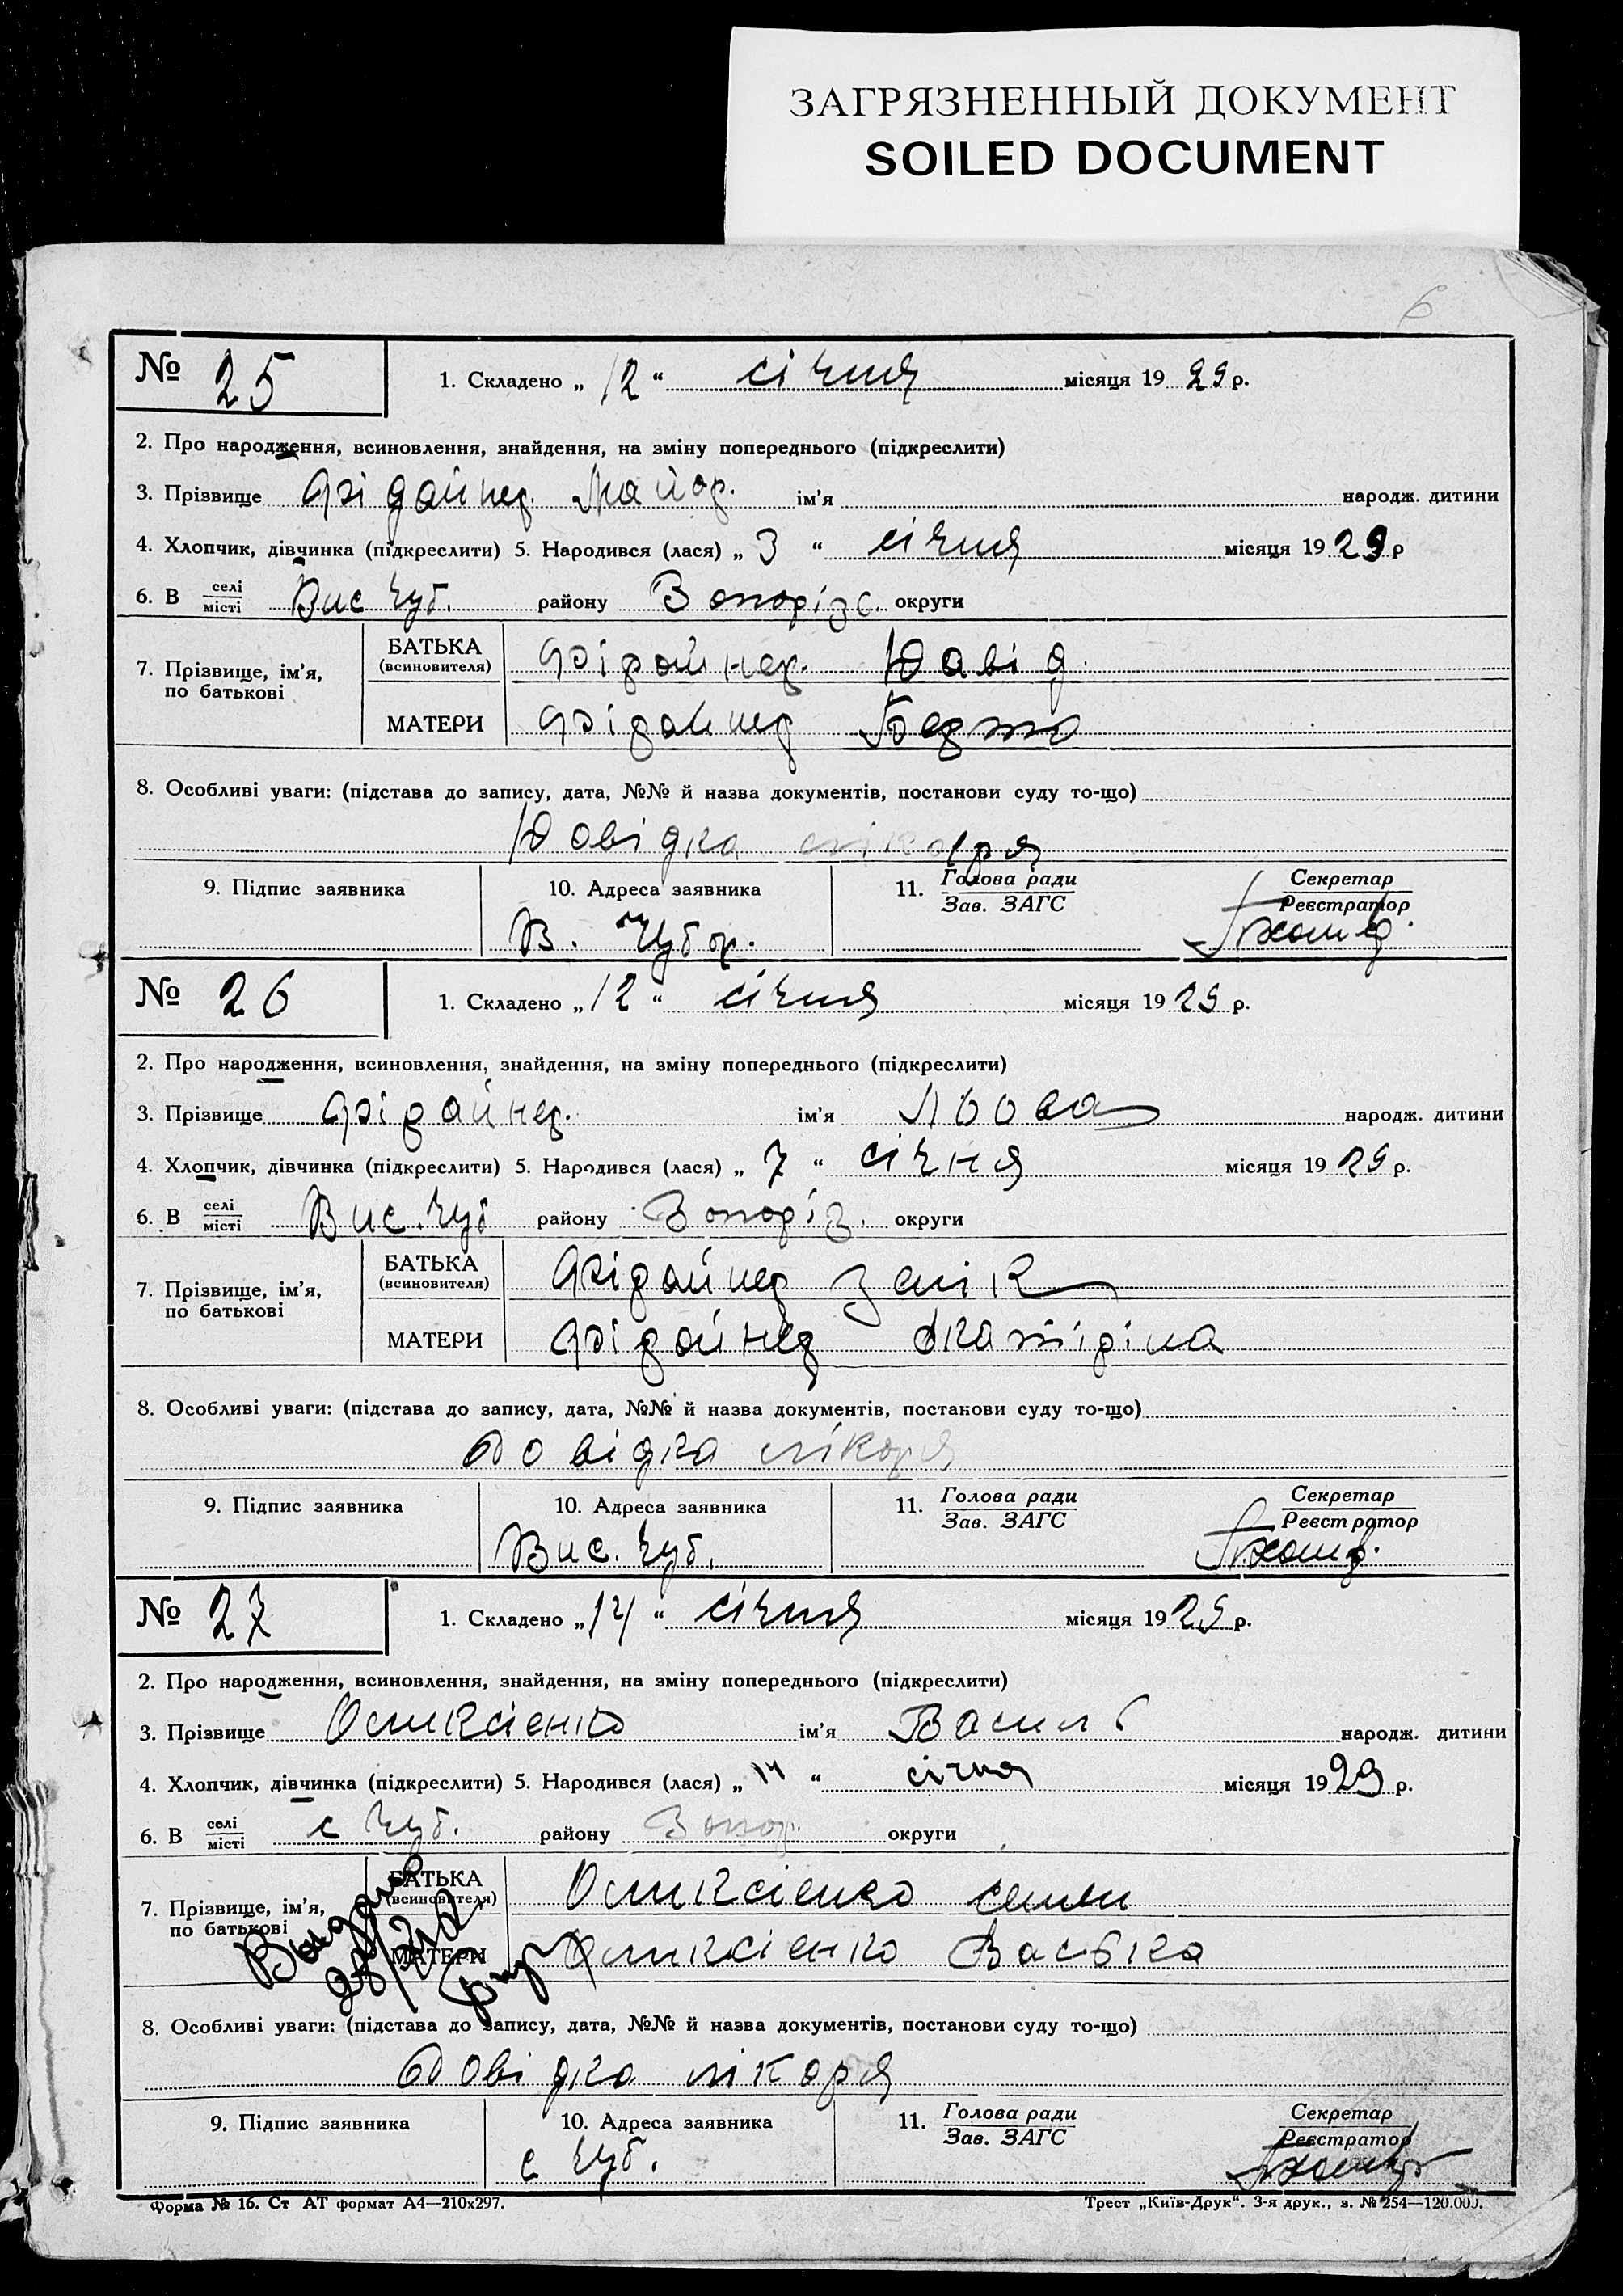 ЗАГРЯЗНЕННЫЙ ДОКУМЕНТ
SOILED DOCUMENT
6
№ 25
1. Складено „ 12 “ січня місяця 19 29 р.
2. Про народження, всиновлення, знайдення, на зміну попереднього (підкреслити)
3. Прізвище Фрідайнер. Майор. ім’я народж. дитини
4. Хлопчик, дівчинка (підкреслити) 5. Народився (лася) „ 3 “ січня місяця 19 29 р
6. В селі місті Вис Чуб. району Запорізс. округи
7. Прізвище, ім’я, по батькові
БАТЬКА (всиновителя) Фрідайнер. Давід.
МАТЕРИ Фрідайнер Берта
8. Особливі уваги: (підстава до запису, дата, №№ й назва документів, постанови суду то-що)
Довідка лікаря
9. Підпис заявника 10. Адреса заявника 11. Голова ради Зав. ЗАГС Секретар Реєстратор
В. Чубар.
№ 26
1. Складено „ 12 “ січня місяця 19 29 р.
2. Про народження, всиновлення, знайдення, на зміну попереднього (підкреслити)
3. Прізвище Фрідайнер. ім’я Льова народж. дитини
4. Хлопчик, дівчинка (підкреслити) 5. Народився (лася) „ 7 “ січня місяця 19 29 р.
6. В селі місті Вис. Чуб району Запоріз. округи
7. Прізвище, ім’я, по батькові
БАТЬКА (всиновителя) Фрідайнер Зелік
МАТЕРИ Фрідайнер Екатіріна
8. Особливі уваги: (підстава до запису, дата, №№ й назва документів, постанови суду то-що)
Довідка лікаря
9. Підпис заявника 10. Адреса заявника 11. Голова ради Зав. ЗАГС Секретар Реєстратор
Вис. Чуб.
№ 27
1. Складено „ 14 “ січня місяця 19 29 р.
2. Про народження, всиновлення, знайдення, на зміну попереднього (підкреслити)
3. Прізвище Оликсієнко ім’я Василь народж. дитини
4. Хлопчик, дівчинка (підкреслити) 5. Народився (лася) „ 14 “ січня місяця 19 29 р.
6. В селі місті с Чуб. району Запор. округи
7. Прізвище, ім’я, по батькові
БАТЬКА (всиновителя) Оликсієнко Семен
МАТЕРИ Оликсієнко Васька
8. Особливі уваги: (підстава до запису, дата, №№ й назва документів, постанови суду то-що)
Довідка лікаря
9. Підпис заявника 10. Адреса заявника 11. Голова ради Зав. ЗАГС Секретар Реєстратор
с Чуб.
Форма № 16. Ст АТ формат А4—210х297.
Трест „Київ-Друк“. 3-я друк., з. № 254—120.000.